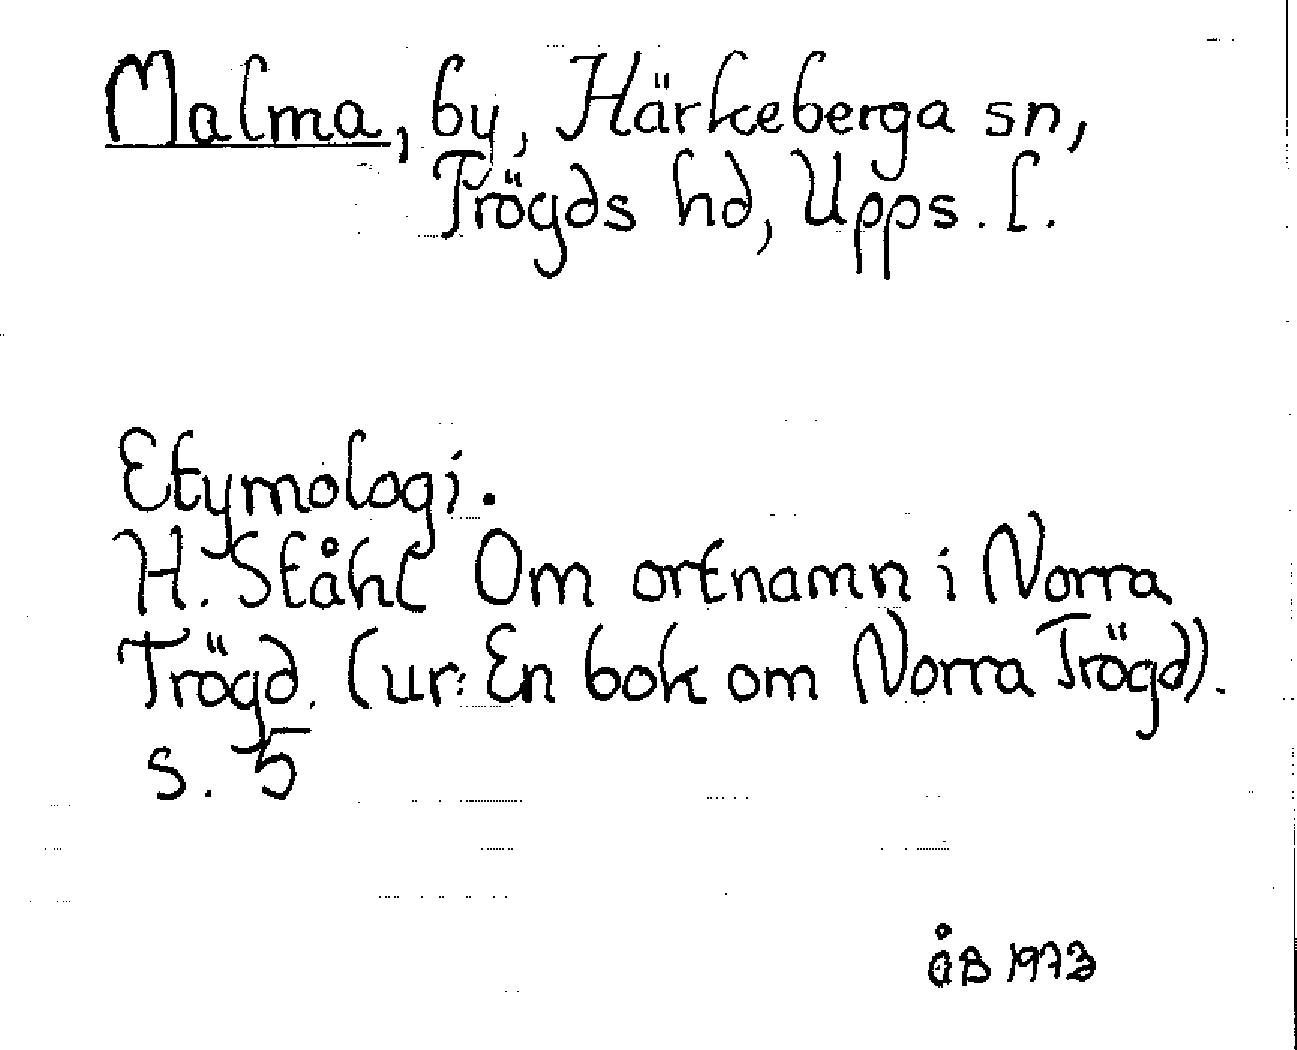 Malma, by, Härkeberga sn,
Trögds hd, Upps. l.
Etymologi.
H. Ståhl Om ortnamn i Norra
Trögd. (ur: En bok om Norra Trögd).
s. 5
åB 1973